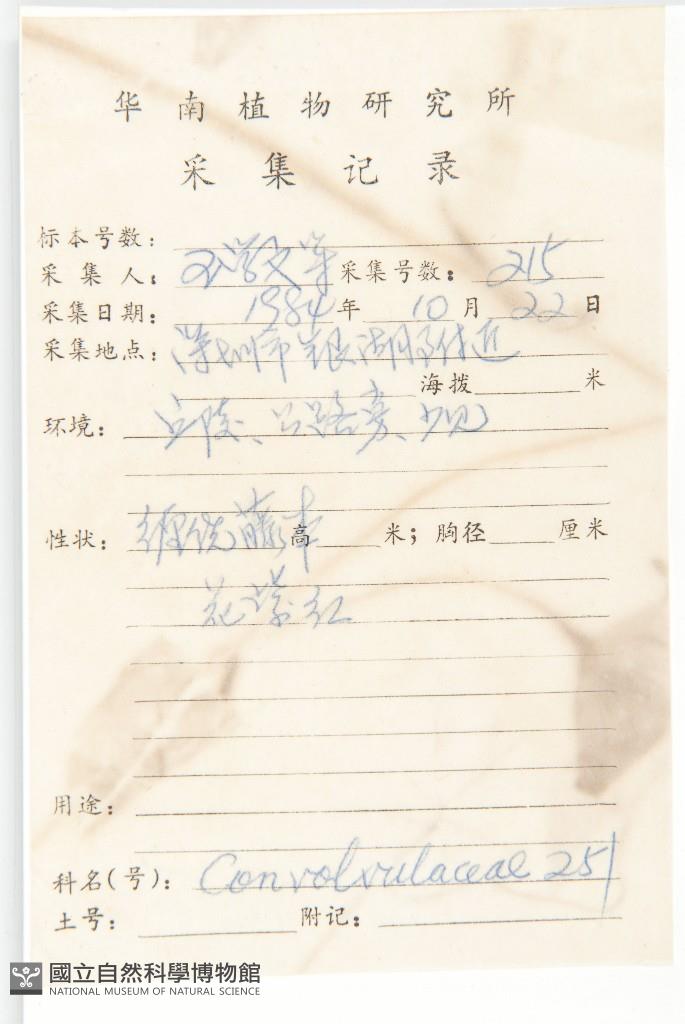 华南植物研究所
采集记录
标本号数:
采集人: 王学文等 采集号数: 215
采集日期: 1984年10月22日
采集地点: 深圳市银湖附近
海拨 米
环境: 丘陵、公路旁、少见
性状: 缠绕藤本 高 米; 胸径 厘米
花紫红
用途:
科名(号): Convolvulaceae 251
土号: 附记:
國立自然科學博物館
NATIONAL MUSEUM OF NATURAL SCIENCE